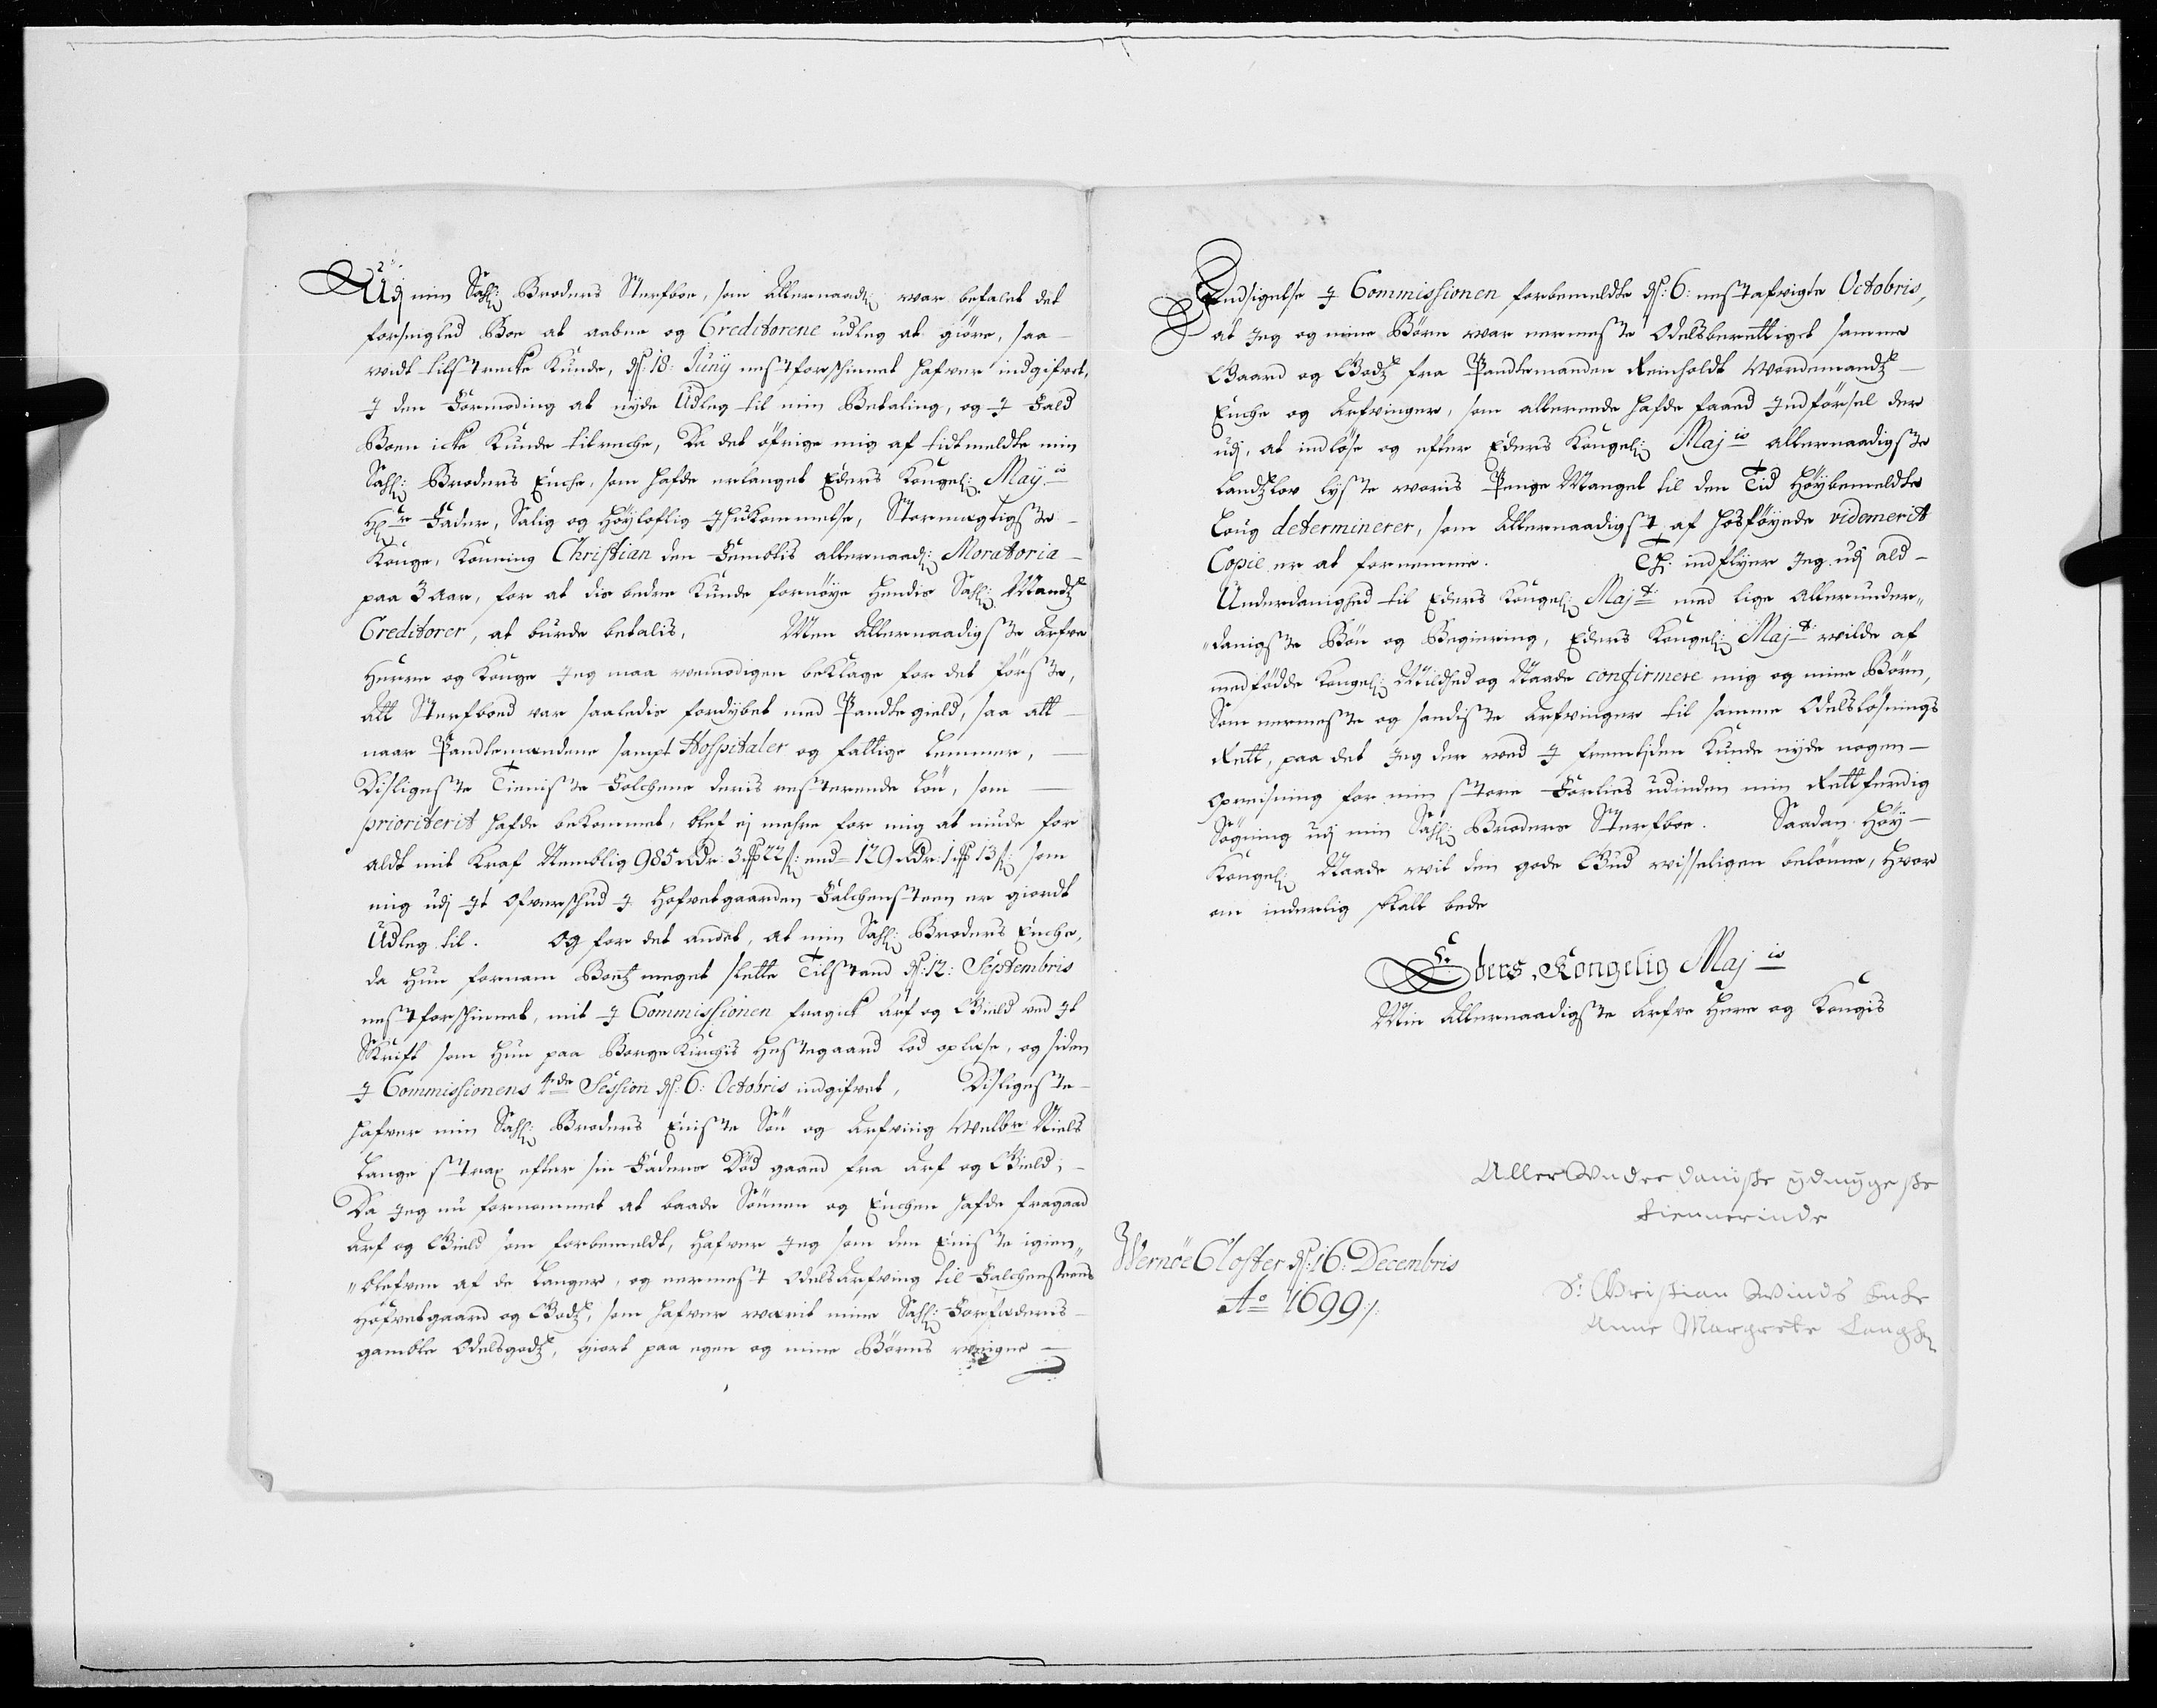 Udj min Sahl: Broders Sterfboe, som Allernaadi: war befalet det
forseigled Boe at aabne og Creditorene udleg at giöre, saa
widt tilstrecke Kunde, dg: 18: Juny nestforschinnet hafver indgifvet,
J den Formoding at nyde Udleg til min Betaling, og J Fald
Boen icke Kunde tilreche, Da det öfrige mig af tidtmeldte min
Sahl: Broders Enche, som hafde erlanget Eders Kongel: May:is
Hr Fader, Salig og Höyloflig Jhukommelse, Stormegtigste
Konge, Konning Christian den Femtis allernaad: Moratoria
paa 3 Aar, for at dis bedre Kunde fornöye Hendis Sahl: Mandtz
Creditorer, at burde betalis, Men Allernaadigste Arfve
Herre og Konge Jeg maa wemodigen beklage for det förste,
att Sterfboed var saaledis fordybet med Pandtegield, saa att
naar Pandtemendene sampt Hospitaler og fattige Lemmer,
Disligeste Tieniste Folchene deris resterende Lön, som
prioriterit hafde bekommet, blef ej mehre for mig at niude for
aldt mit Kraf Nemblig 985 Rdr: 3 ß 22 s: end 129 Rdr: 1 ß 13 s: som
mig udj Jt Ofverschud J Hofvetgaarden Falchensteen er giordt
Udleg til. Og for det andet, at min Sahl: Broders Enche,
da Hun fornam Boetz meget slette Tilstand dg: 12: Septembris
nestforschinnet, mit J Commissionen fragick Arf og Gield ved Jt
Skrift som Hun paa Borge Kirchis Hestegaard lod oplæse, og siden
J Commissionens 4de Session dg: 6: Octobris indgifvet, Disligeste
hafver min Sahl: Broders Eniste Sön og Arfving Welbr Niels
Lange strax efter sin Faders Död gaaed fra Arf og Gield;
Da Jeg nu fornommet at baade Sönnen og Enchen hafde fragaaed
Arf og Gield som forbemeldt, Hafver Jeg som den Eniste igien
"blefven af de Langer, og nermest Odels Arfving til Falchensteens
Hofvetgaard og Godtz, som hafver wærit mine Sahl: Forfædres
gamble Odelsgodtz, giort paa egen og mine Börns weigne
Endsigelse J Commissionen forbemeldte dg: 6: nestafvigte Octobris,
at Jeg og mine Börn war nermeste Odelsberettiget samme
Gaard og Godtz fra Pandtemanden Reinholdt Wordemandtz
Enche og Arfvinger, som allereede hafde faaed Jndförsel der
udj, at indlöse og efter Eders Kongel: Maj:is allernaadigste
Landtzlov lyste woris Penge Mangel til den Tid Höybemeldte
Loug determinerer, som Allernaadigst af hosföyede videmerit
Copie er at fornemme. Thj indflyer Jeg udj ald
Underdanighed til Eders Kongel: Maj:t med lige Allerunder"
"danigste Bön og Begiering, Eders Kongel: Maj:t wilde af
medfödde Kongel: Mildhed og Naade confirmere mig og mine Börn,
Som nermeste og sandiste Arfvinger til samme Odelslösnings
Rett, paa det Jeg der wed J fremtiden Kunde nyde nogen
opreisning for min store Forlies udinden min Rettferdig
Sögning udj min Sahl: Broders Sterfboe. Saadan Höy
Kongel: Naade wil den gode Gud wisseligen belönne, Hvor
om inderlig skall bede
Eders Kongelig Maj:is
Min Allernaadigste Arfve Herre og Kongis
Aller Under danigste ydmygeste
tiennerinde
Wernöe Closter dg: 16: Decembris
Ao 1699 /:
S: Christian Winds Enke
Anne Margrete Langh